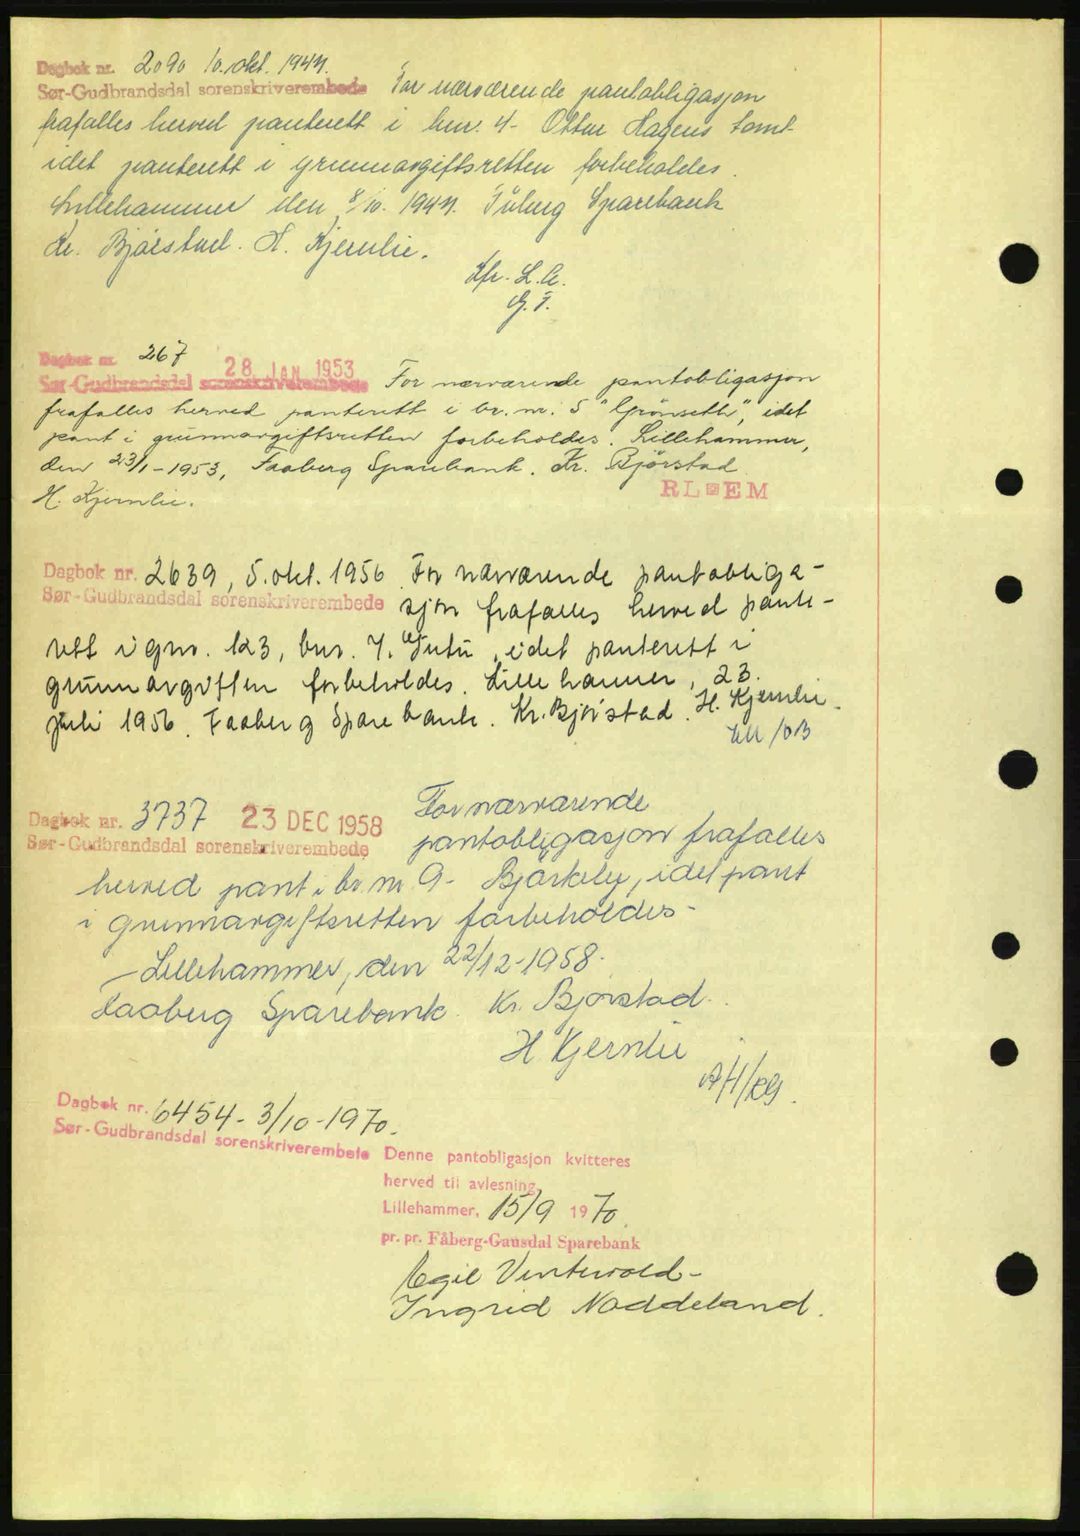 Dagbok nr. 2090 10. okt. 1944.
Sør-Gudbrandsdal sorenskriverembede For nærværende pantobligasjon
frafalles herved panterett i bnr. 4 - Ottar Hagens tomt
idet panterett i grunnavgiftsretten forbeholdes.
Lillehammer den 8/10. 1944. Fåberg Sparebank
Kr. Bjørstad. H. Kjernlie.
Kfr. L.A.
Dagbok nr. 267
28. JAN 1953
Sør-Gudbrandsdal sorenskriverembede For nærværende pantobligasjon
frafalles herved panterett i br. nr. 5 "Grønsetli", idet
pant i grunnavgiftsretten forbeholdes. Lillehammer,
den 23/1-1953, Faaberg Sparebank. Kr. Bjørstad
H. Kjernlie.
RL EM
Dagbok nr. 2639, 5. okt. 1956 For nærværende pantobliga-
Sør-Gudbrandsdal sorenskriverembede sjon frafalles herved pante-
rett i gnr. 123, bnr. 7, idet panterett i
grunnavgiften forbeholdes. Lillehammer, 23.
juli 1956. Faaberg Sparebank. Kr. Bjørstad. H. Kjernlie.
Dagbok nr. 3737 23 DEC 1958 For nærværende
Sør-Gudbrandsdal sorenskriverembede pantobligasjon frafalles
herved pant i br. nr. 9 - Bjørkely, idet pant
i grunnavgiftsretten forbeholdes -
- Lillehammer, den 22/12-1958.
Faaberg Sparebank. Kr. Bjørstad.
H Kjernlie
AH/RG.
Dagbok nr. 6454 - 3/10 - 1970.
Sør-Gudbrandsdal sorenskriverembete
Denne pantobligasjon kvitteres
herved til avlesning.
Lillehammer, 15/9 1970.
pr. pr. Fåberg-Gausdal Sparebank
Egil Vintervold -
Ingrid Noddeland.